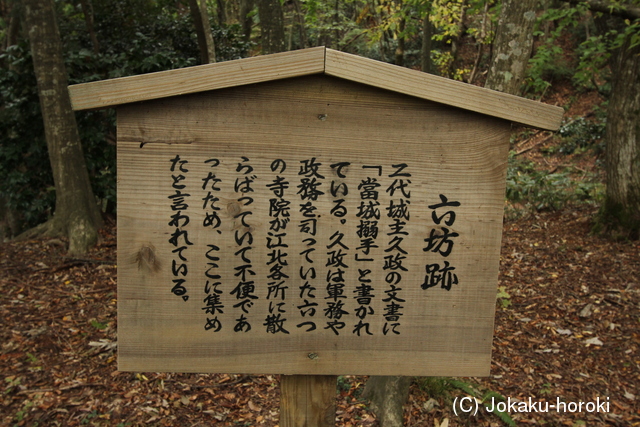 六坊跡
二代城主久政の文書に
「當城搦手」と書かれ
ている。久政は軍務や
政務を司っていた六つ
の寺院が江北各所に散
らばっていて不便であ
ったため、ここに集め
たと言われている。
(C) Jokaku-horoki